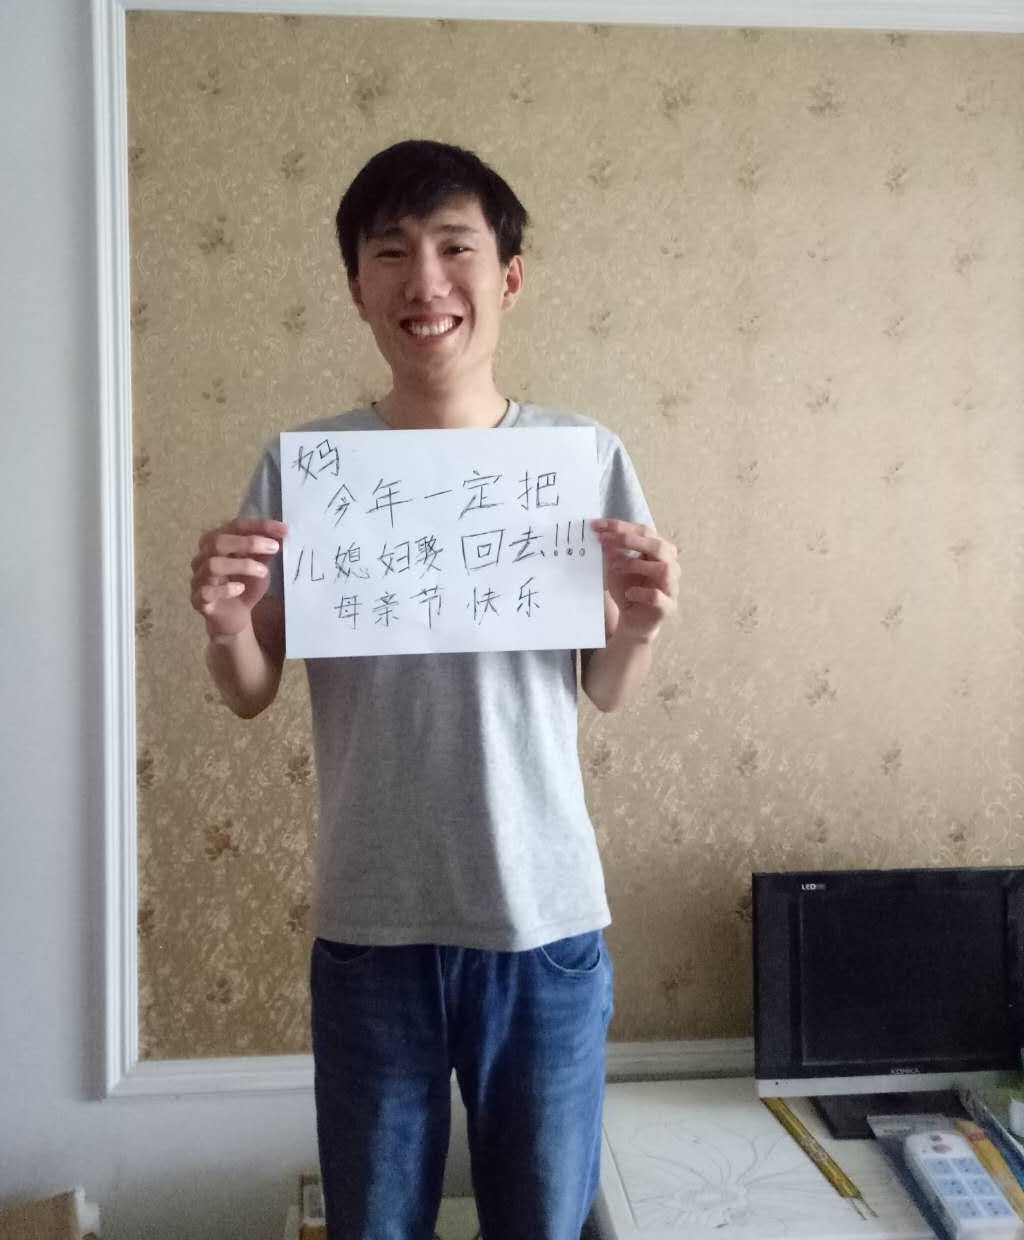 妈
今年一定把
儿媳妇娶回去!!!
母亲节快乐
LED
KONKA